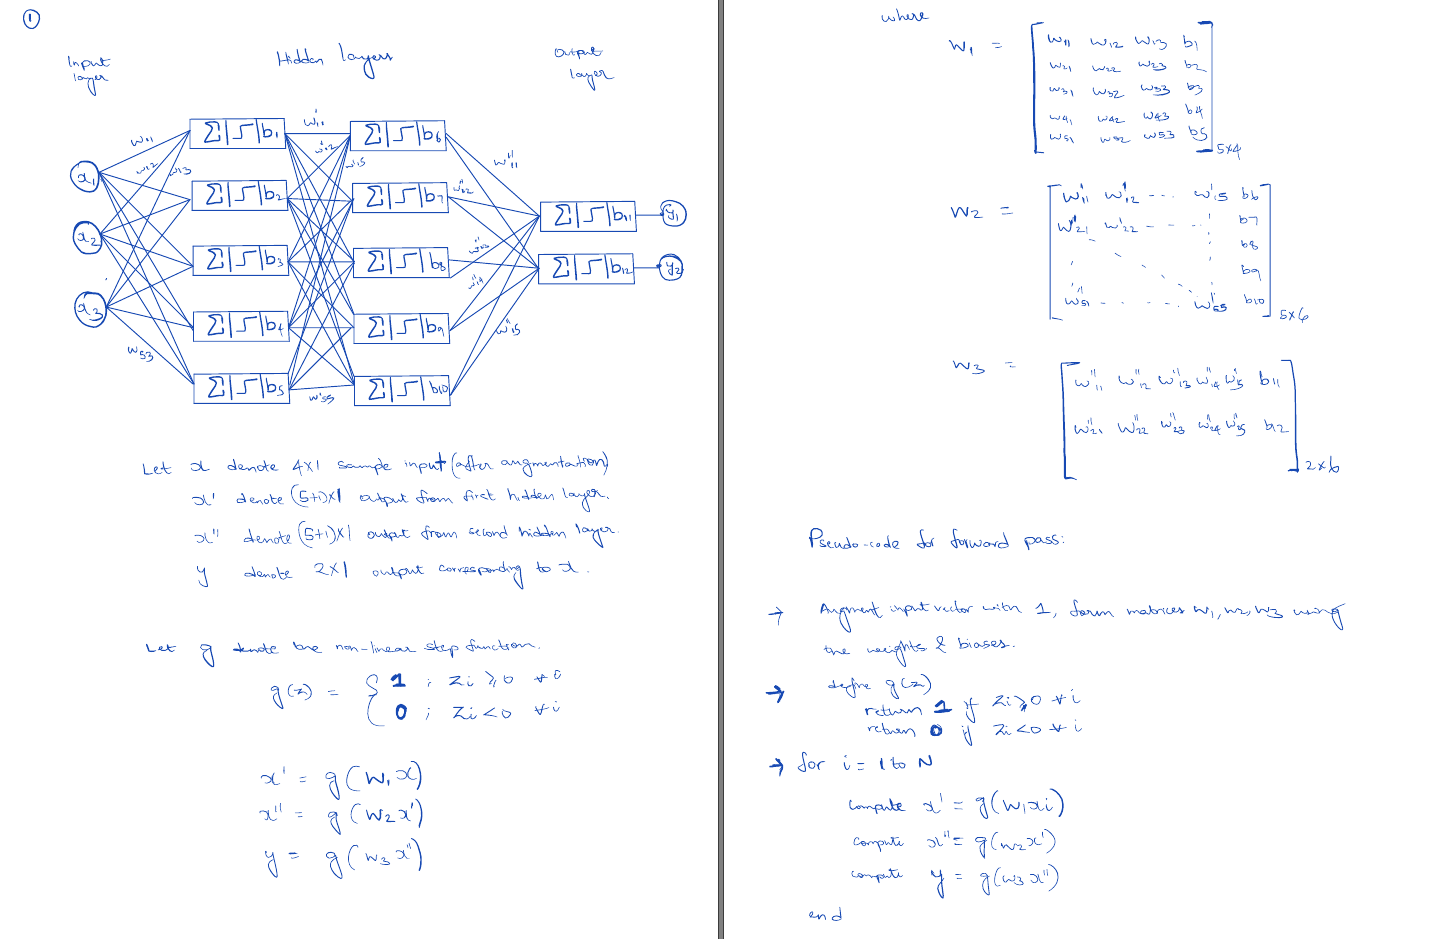 ①
Input layer
Hidden layers
Output layer
w11
w12
w13
w53
x1
x2
x3
∑ | b1
∑ | b2
∑ | b3
∑ | b4
∑ | b5
w'11
w'12
w'15
w'55
∑ | b6
∑ | b7
∑ | b8
∑ | b9
∑ | b10
w''11
w''12
w''13
w''14
w''15
∑ | b11
∑ | b12
y1
y2
Let x denote 4x1 sample input (after augmentation)
x' denote (5+1)x1 output from first hidden layer.
x'' denote (5+1)x1 output from second hidden layer.
y denote 2x1 output corresponding to x.
Let g denote the non-linear step function.
g(z) = { 1 ; zi ≥ 0 ∀ i
0 ; zi < 0 ∀ i
x' = g(W1x)
x'' = g(W2x')
y = g(W3x'')
where
W1 =
w11 w12 w13 b1
w21 w22 w23 b2
w31 w32 w33 b3
w41 w42 w43 b4
w51 w52 w53 b5
5x4
W2 =
w'11 w'12 --- w'15 b6
w'21 w'22 ---- b7
b8
b9
w'51 ---- w'55 b10
5x6
W3 =
w''11 w''12 w''13 w''14 w''15 b11
w''21 w''22 w''23 w''24 w''25 b12
2x6
Pseudo-code for forward pass:
→ Augment input vector with 1, form matrices W1, W2, W3 using
the weights & biases.
→ define g(z)
return 1 if zi ≥ 0 ∀ i
return 0 if zi < 0 ∀ i
→ for i = 1 to N
compute x' = g(W1xi)
compute x'' = g(W2x')
compute y = g(W3x'')
end